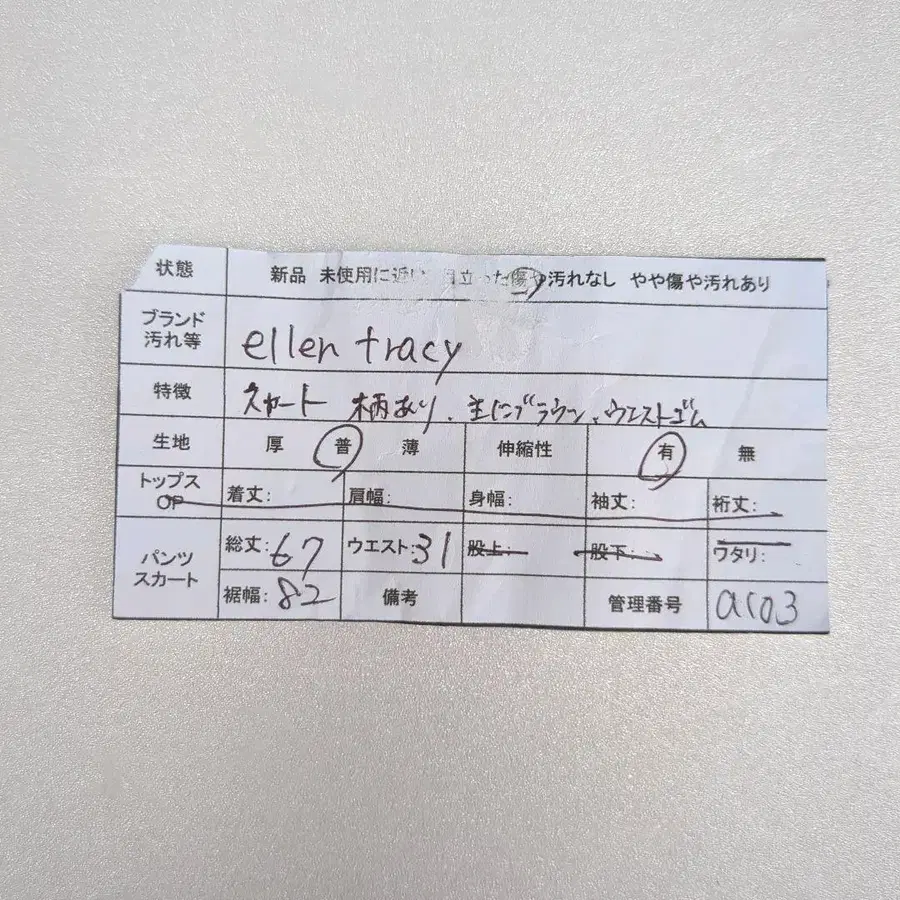 状態 新品 未使用に近い 目立った傷や汚れなし やや傷や汚れあり
ブランド
汚れ等 ellen tracy
特徴 スカート 柄あり、主にブラウン、ウエストゴム
生地 厚 普 薄 伸縮性 有 無
トップス
OP 着丈: 肩幅: 身幅: 袖丈: 裄丈:
パンツ
スカート 総丈:67 ウエスト:31 股上: 股下: ワタリ:
裾幅:82 備考 管理番号 a103